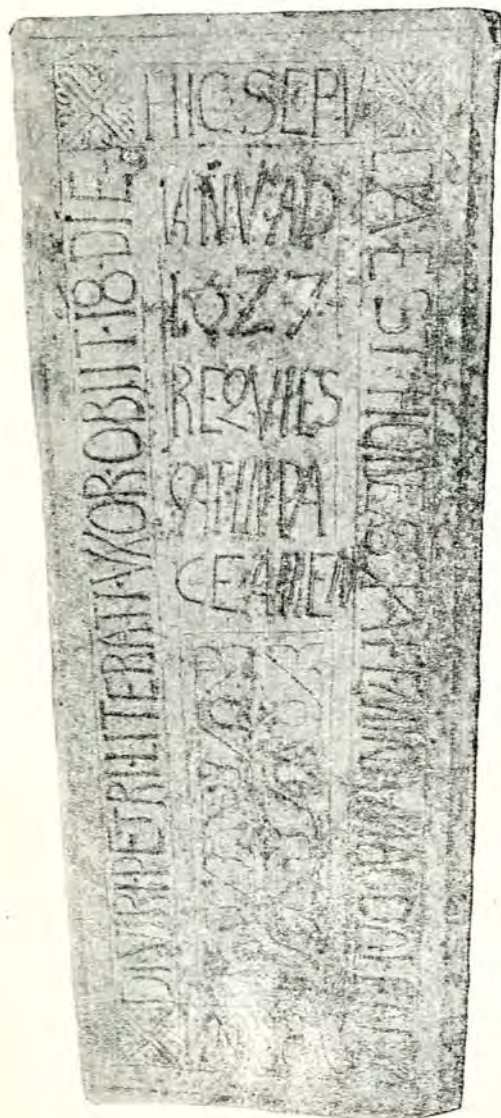 HIC·SEPV
LTA·EST·HONESTA·FEMINA
DIVI·R·PETRI·LITERATI·VXOR·OBIIT·18·DIE
IANV·AD
1627
REQVIES
CAT·IN·PA
CE·AMEN